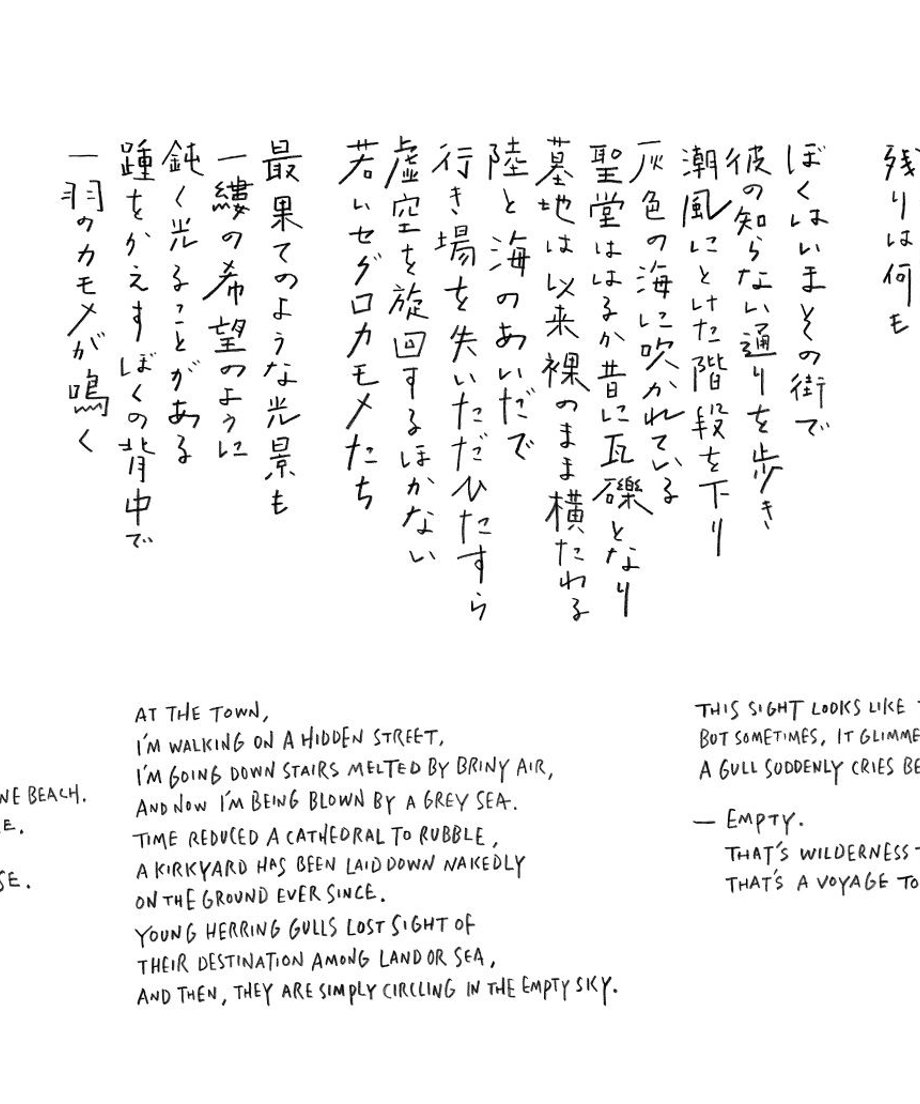 残りは何も
ぼくはいまその街で
彼の知らない通りを歩き
潮風にとけた階段を下り
灰色の海に吹かれている
聖堂ははるか昔に瓦礫となり
墓地は以来裸のまま横たわる
陸と海のあいだで
行き場を失いただひたすら
虚空を旋回するほかない
若いセグロカモメたち
最果てのような光景も
一縷の希望のように
鈍く光ることがある
踵をかえすぼくの背中で
一羽のカモメが鳴く
NE BEACH.
E.
SE.
AT THE TOWN,
I'M WALKING ON A HIDDEN STREET,
I'M GOING DOWN STAIRS MELTED BY BRINY AIR,
AND NOW I'M BEING BLOWN BY A GREY SEA.
TIME REDUCED A CATHEDRAL TO RUBBLE,
A KIRKYARD HAS BEEN LAID DOWN NAKEDLY
ON THE GROUND EVER SINCE.
YOUNG HERRING GULLS LOST SIGHT OF
THEIR DESTINATION AMONG LAND OR SEA,
AND THEN, THEY ARE SIMPLY CIRCLING IN THE EMPTY SKY.
THIS SIGHT LOOKS LIKE
BUT SOMETIMES, IT GLIMME
A GULL SUDDENLY CRIES BE
— EMPTY.
THAT'S WILDERNESS
THAT'S A VOYAGE TO